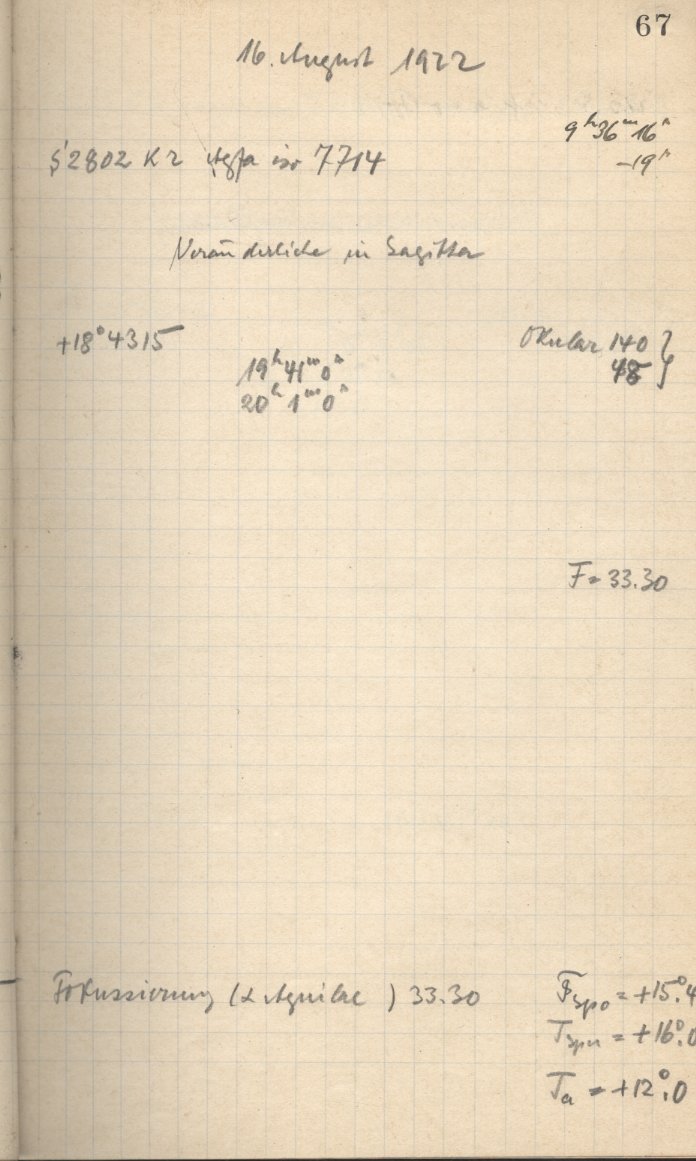 67
16. August 1922
9ʰ36ᵐ16ˢ
-19ˢ
S 2802 K2 Agfa iso 7714
Veränderliche in Sagitta
+18°4315
Okular 140 }
48
19ʰ41ᵐ0ˢ
20ʰ1ᵐ0ˢ
F = 33.30
Fokussierung (α Aquilae) 33.30
= +15°.4
T = +16°.0
Tₐ = +12°.0